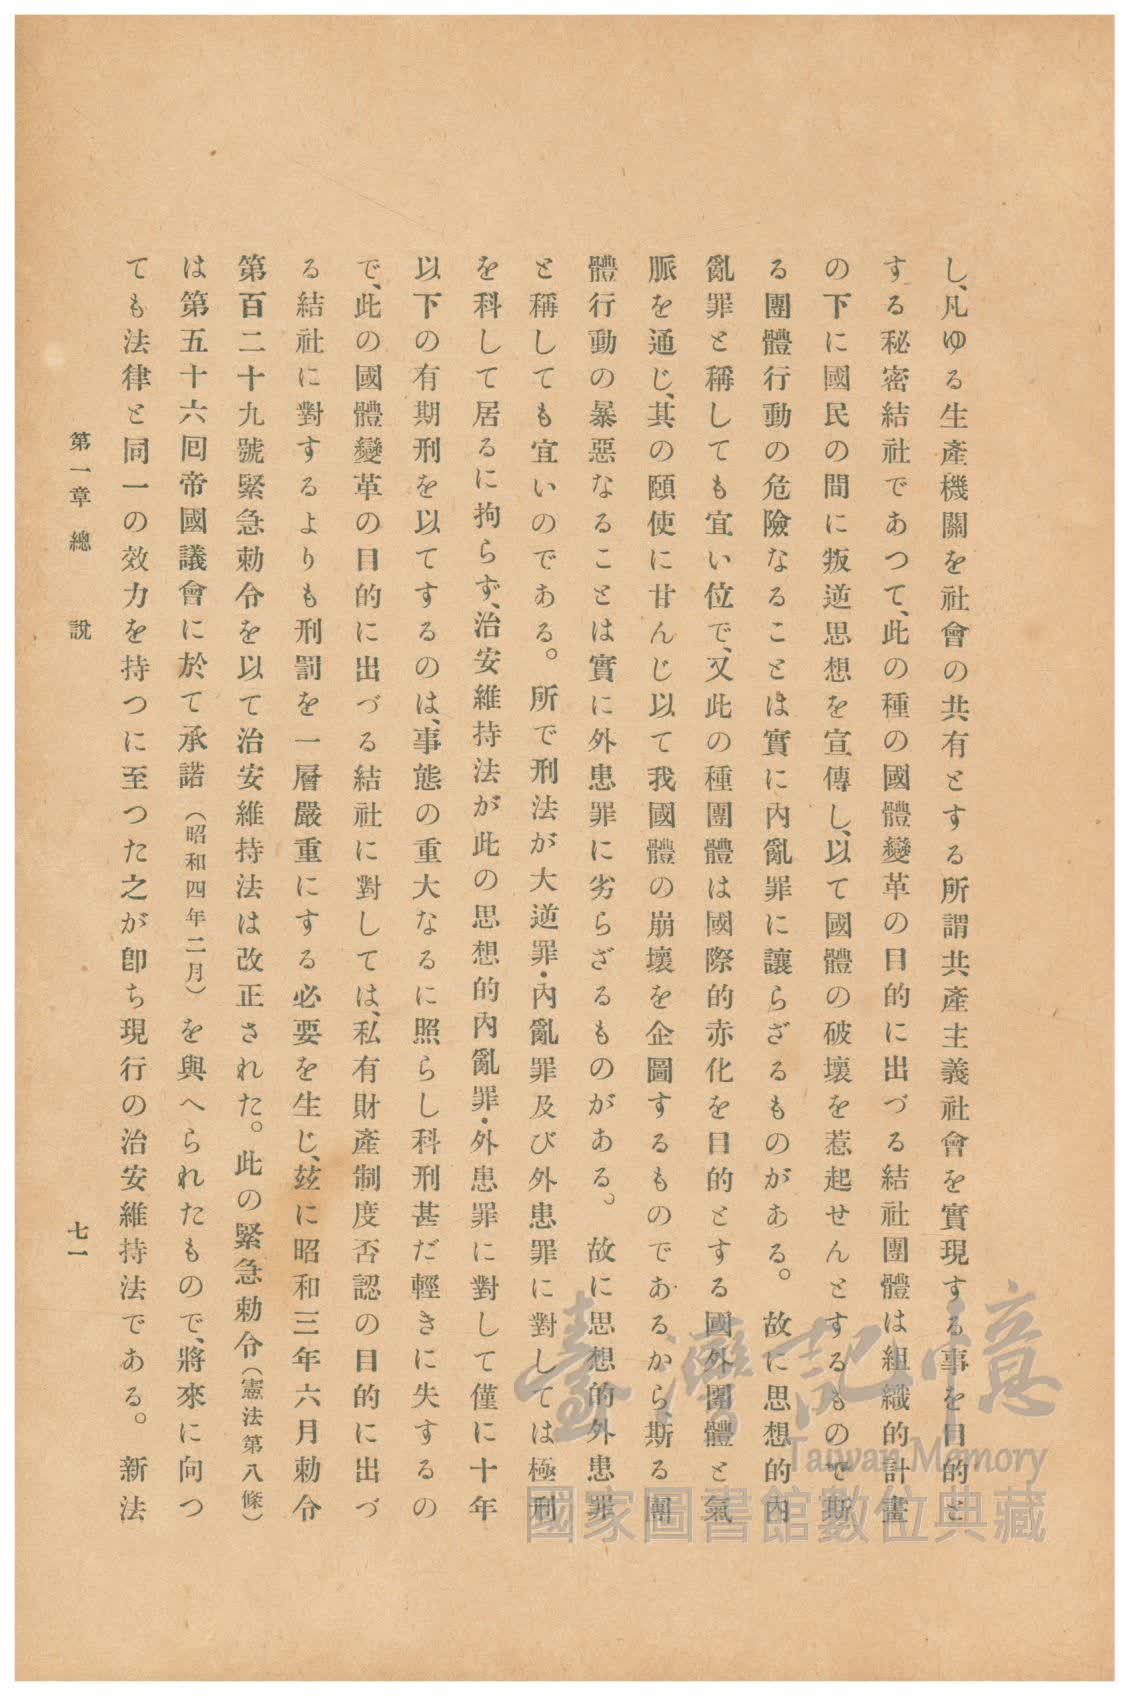 し、凡ゆる生產機關を社會の共有とする所謂共產主義社會を實現する事を目的と
する秘密結社であつて、此の種の國體變革の目的に出づる結社團體は組織的計畫
の下に國民の間に叛逆思想を宣傳し、以て國體の破壞を惹起せんとするもので斯
る團體行動の危險なることは實に內亂罪に讓らざるものがある。故に思想的內
亂罪と稱しても宜い位で、又此の種團體は國際的赤化を目的とする國外團體と氣
脈を通じ、其の頤使に甘んじ以て我國體の崩壞を企圖するものであるから斯る團
體行動の暴惡なることは實に外患罪に劣らざるものがある。故に思想的外患罪
と稱しても宜いのである。所で刑法が大逆罪・內亂罪及び外患罪に對しては極刑
を科して居るに拘らず、治安維持法が此の思想的內亂罪・外患罪に對して僅に十年
以下の有期刑を以てするのは、事態の重大なるに照らし科刑甚だ輕きに失するの
で、此の國體變革の目的に出づる結社に對しては、私有財產制度否認の目的に出づ
る結社に對するよりも刑罰を一層嚴重にする必要を生じ、玆に昭和三年六月勅令
第百二十九號緊急勅令を以て治安維持法は改正された。此の緊急勅令(憲法第八條)
は第五十六囘帝國議會に於て承諾(昭和四年二月)を與へられたもので、將來に向つ
ても法律と同一の效力を持つに至つた之が卽ち現行の治安維持法である。新法
第一章 總 說
七一
臺灣記憶
Taiwan Memory
國家圖書館數位典藏